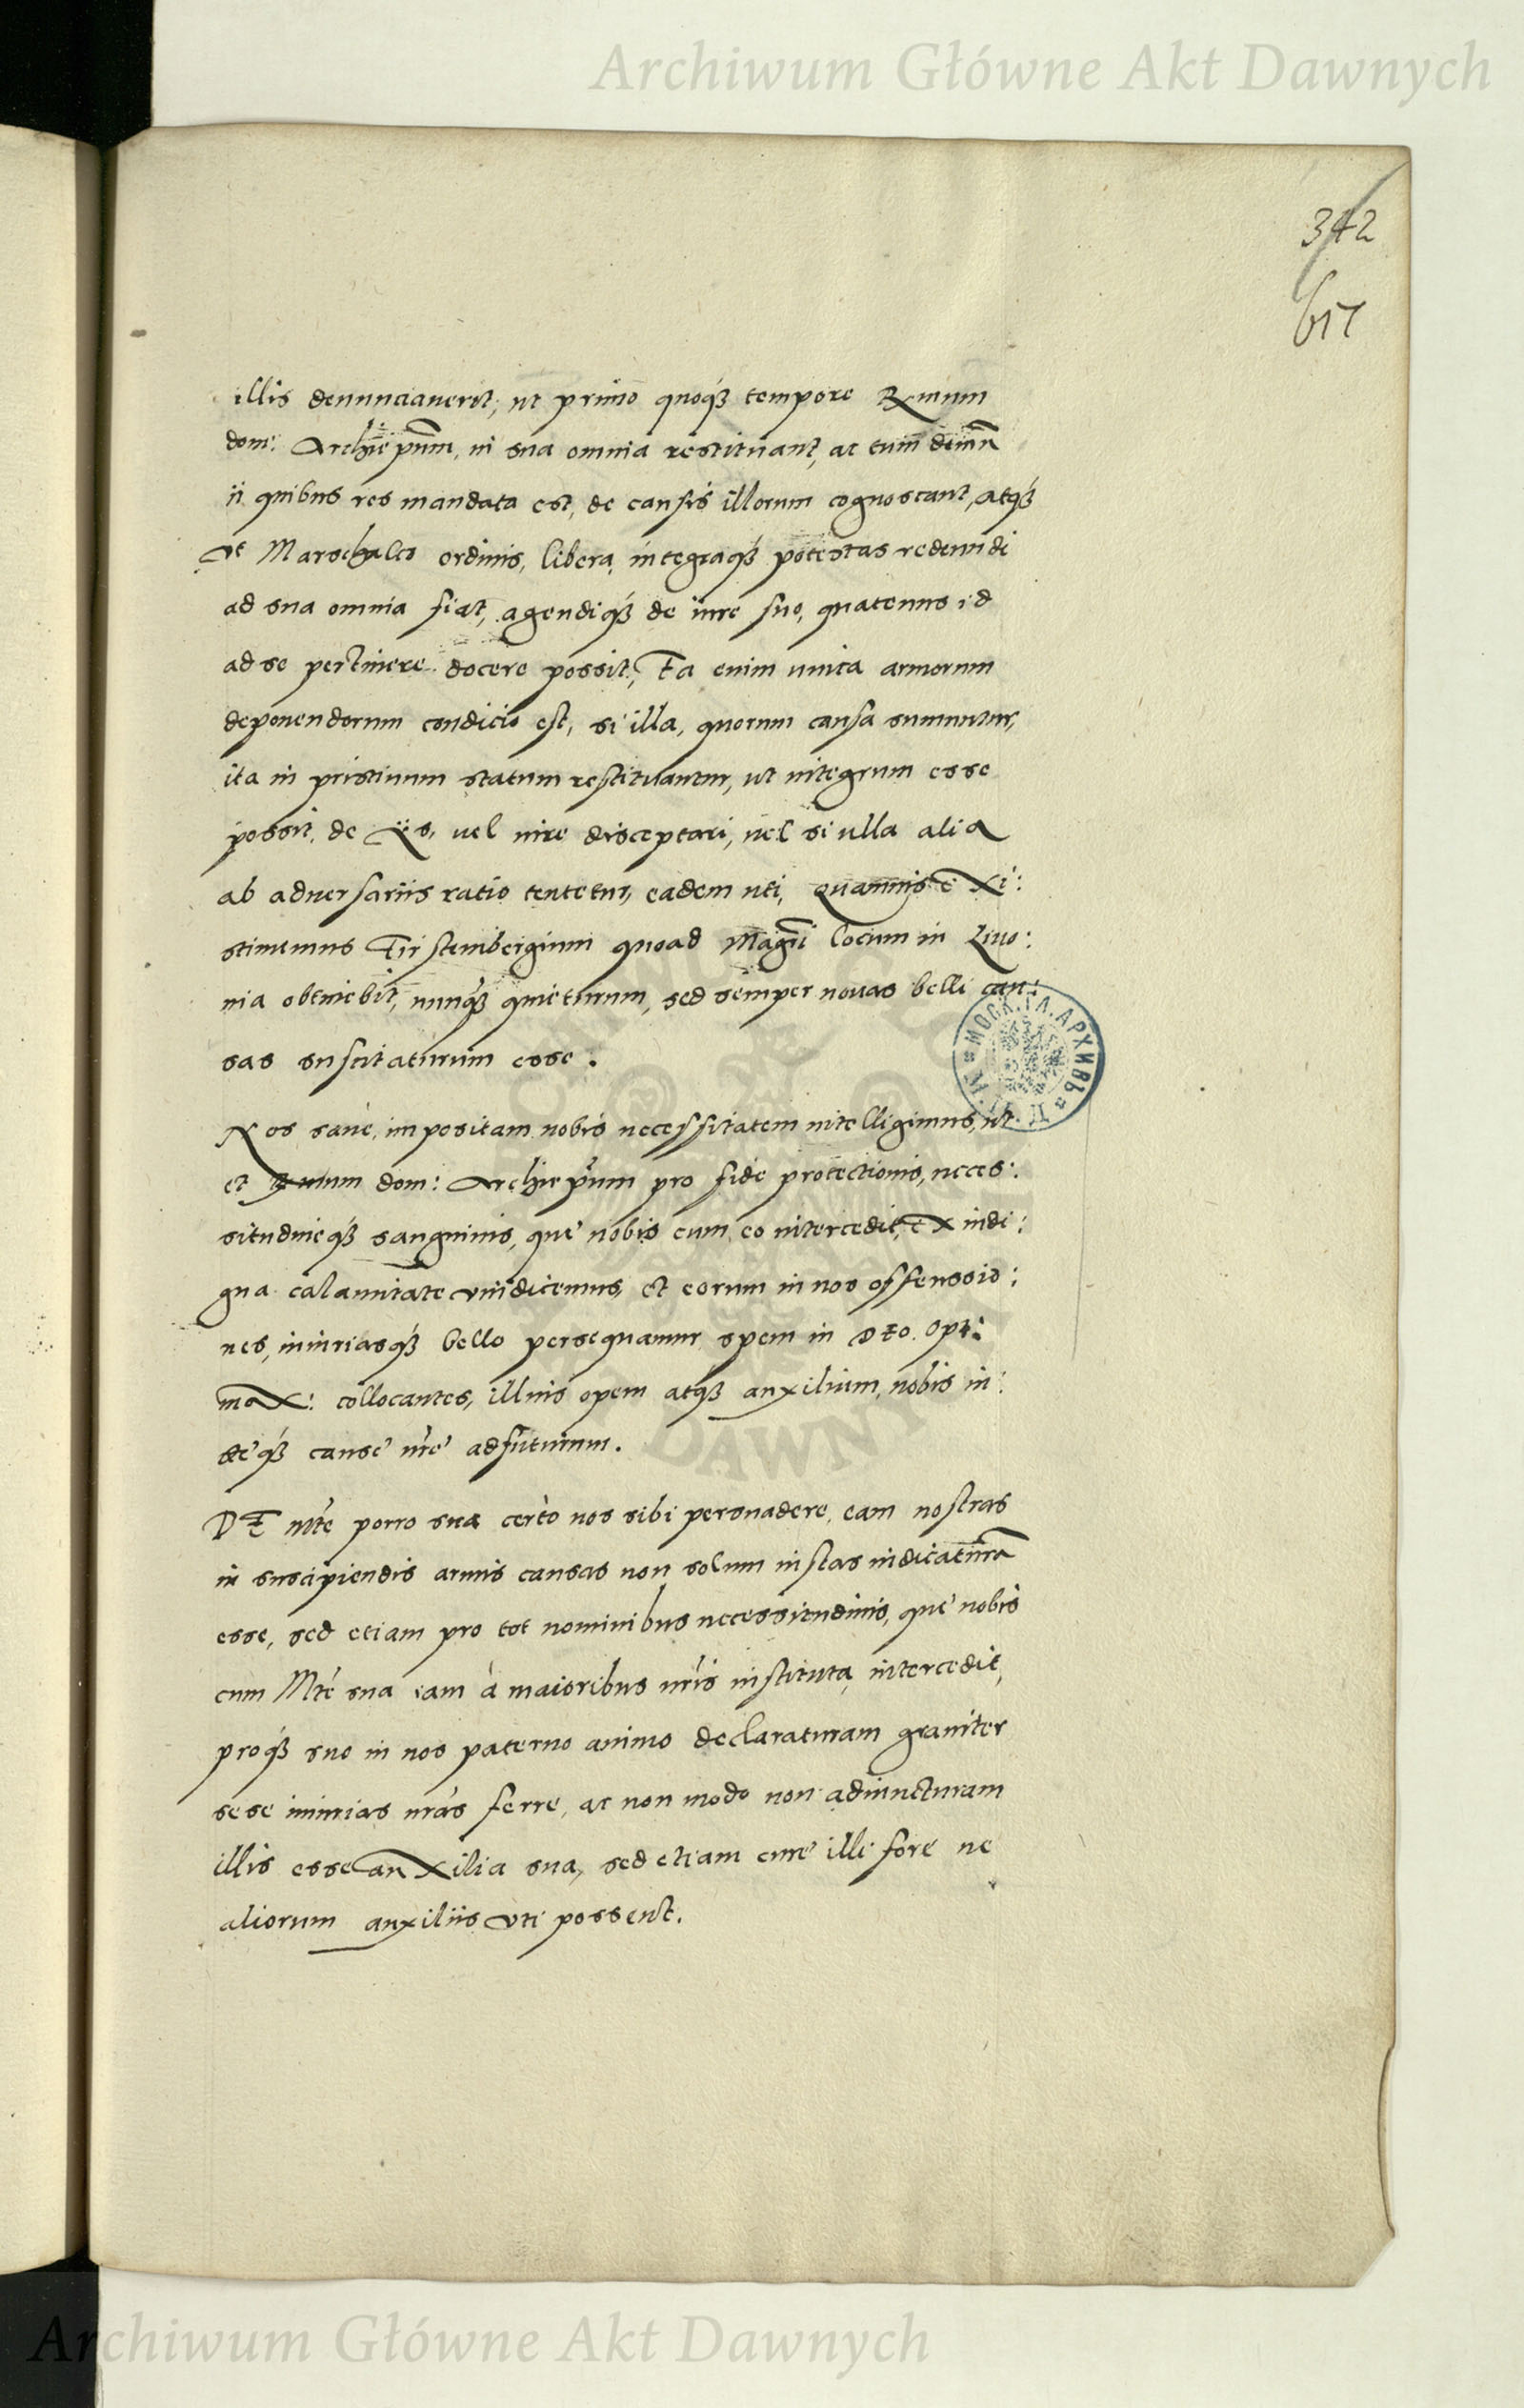 Archiwum Główne Akt Dawnych
342
617
illis denunciauerit, ut primo quoq́ꝫ tempore Rmum
dom: Archiepũm, in sua omnia restituant, ac tum demũ
ii quibus res mandata est, de causis illorum cognoscant, atq́ꝫ
ut Marschalco ordinis, libera, integraq́ꝫ potestas redeundi
ad sua omnia fiat, agendiq́ꝫ de iure suo, quatenus id
ad se pertinere docere possit, Ea enim unica armorum
deponendorum condicio est, si illa, quorum causa sumuntur,
ita in pristinum statum restituantur, ut integrum esse
possit, de iis, uel iure disceptari, uel si ulla alia
ab aduersariis ratio tentetur, eadem uti, Quamuis exi:
stimemus Firstembergium quoad Magñi locum in Liuo:
nia obtinebit, nunq́ꝫ quieturum, sed semper nouas belli cau:
sas suscitaturum esse.
МОСК. ГЛ. АРХИВЪ
Nos sanè, impositam nobis necessitatem intelligimus, ut
et Rmum dom: Archiepũm pro fide protectionis, neces:
situdineq́ꝫ sanguinis, que nobis cum eo intercedit, ex indi:
gna calamitate uindicemus, et eorum in nos offensio:
nes, iniuriasq́ꝫ bello persequamur, spem in DEO. Opt:
max: collocantes, illius opem atq́ꝫ auxilium, nobis in:
deq́ꝫ cause nr̃e adfuturum.
DE Mte porro sua certò nos sibi persuadere, eam nostras
in suscipiendis armis causas non solum iustas iudicaturã
esse, sed etiam pro tot nominibus necessitudinis, que nobis
cum Mte sua iam à maioribus nr̃is instituta, intercedit,
proq́ꝫ suo in nos paterno animo declaraturam grauiter
sese iniurias nr̃as ferre, ac non modo non adiuncturam
illis esse auxilia sua, sed etiam cure illi fore ne
aliorum auxiliis uti possent.
DAWNYCH
Archiwum Główne Akt Dawnych